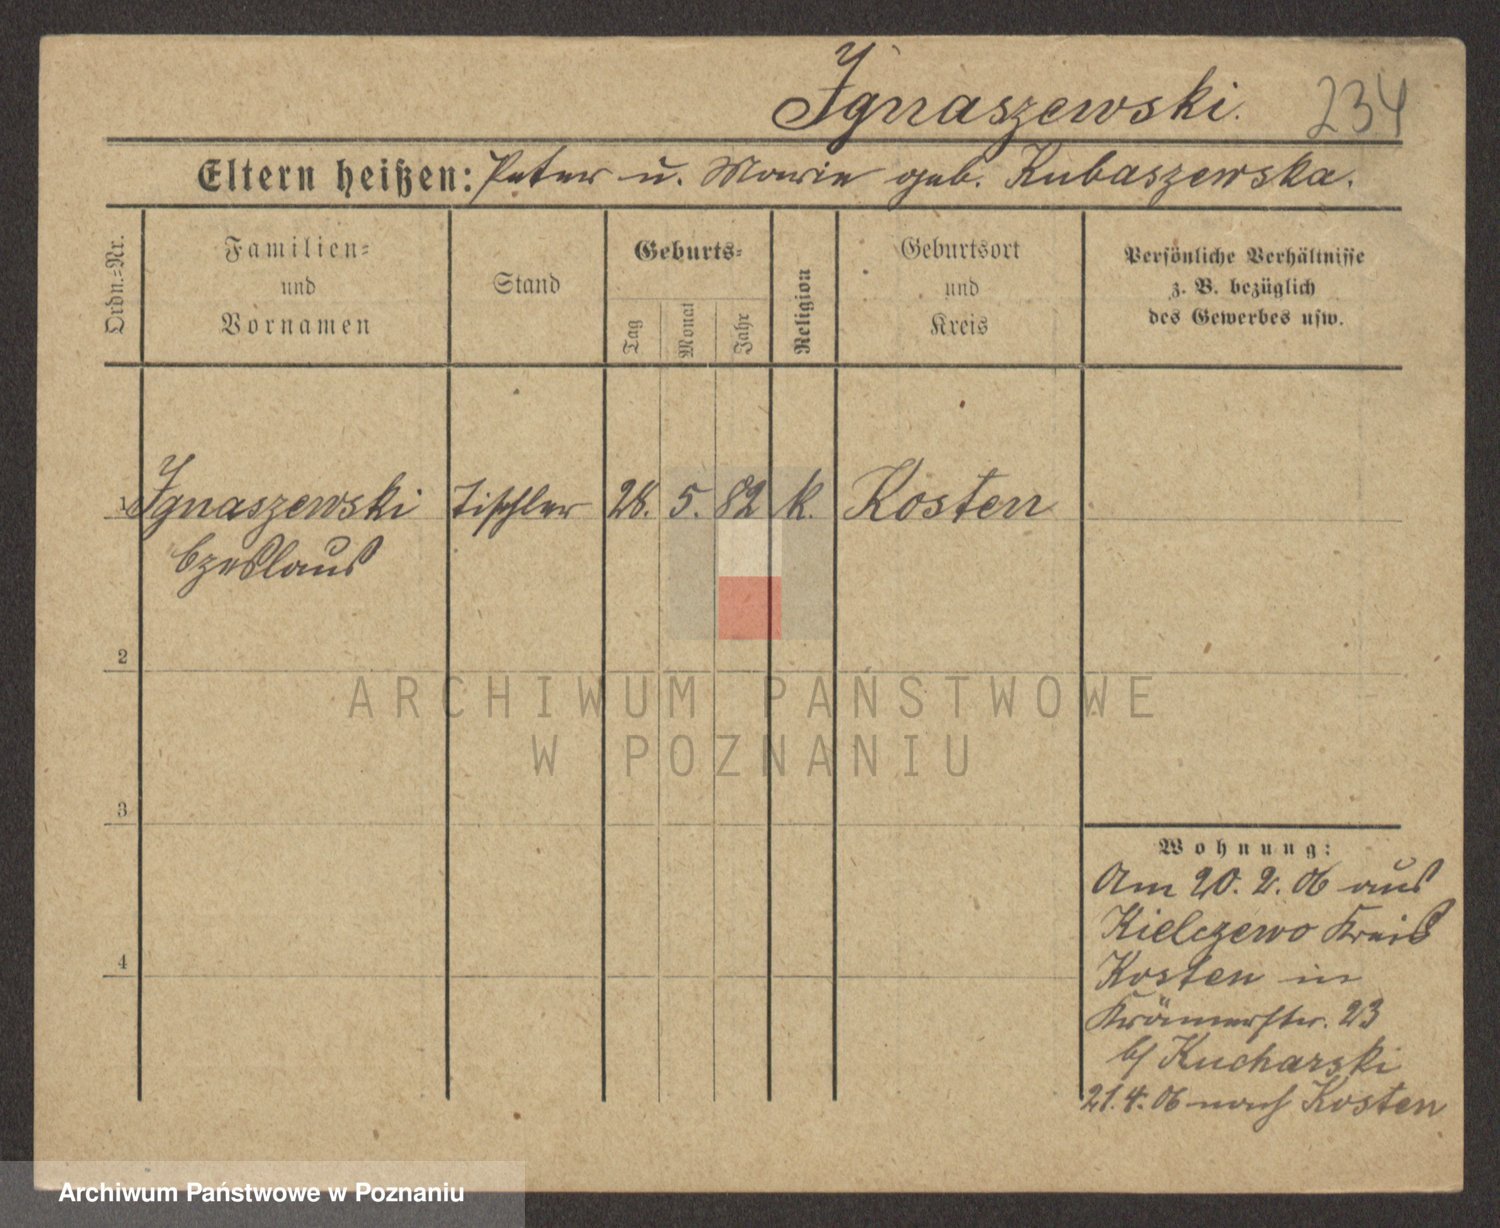 Ignaszewski. 234
Eltern heißen: Peter u. Marie geb. Kubaszewska.
Ordn.-Nr.
Familien-
und
Vornamen
Stand
Geburts-
Tag
Monat
Jahr
Religion
Geburtsort
und
Kreis
Persönliche Verhältnisse
z. B. bezüglich
des Gewerbes usw.
1 Ignaszewski Tischler 28. 5. 82 k. Kosten
Czeslaus
2
ARCHIWUM PAŃSTWOWE
W POZNANIU
3
Wohnung:
Am 20. 2. 06 aus
Kielczewo Kreis
4
Kosten in
Krämerstr. 23
b/ Kucharski
21. 4. 06 nach Kosten
Archiwum Państwowe w Poznaniu